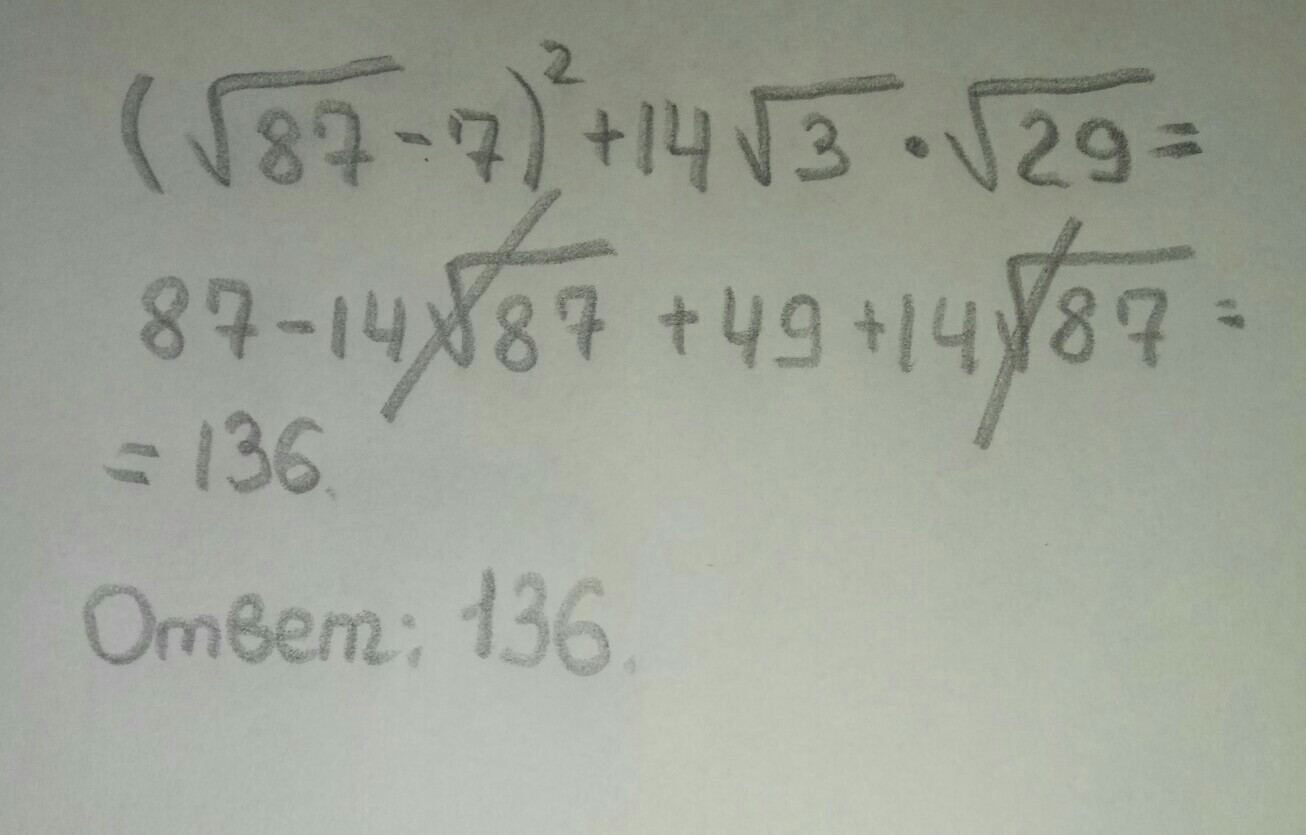 (√87 - 7)² + 14√3 · √29 =
87 - 14√87 + 49 + 14√87 =
= 136.
Ответ: 136.